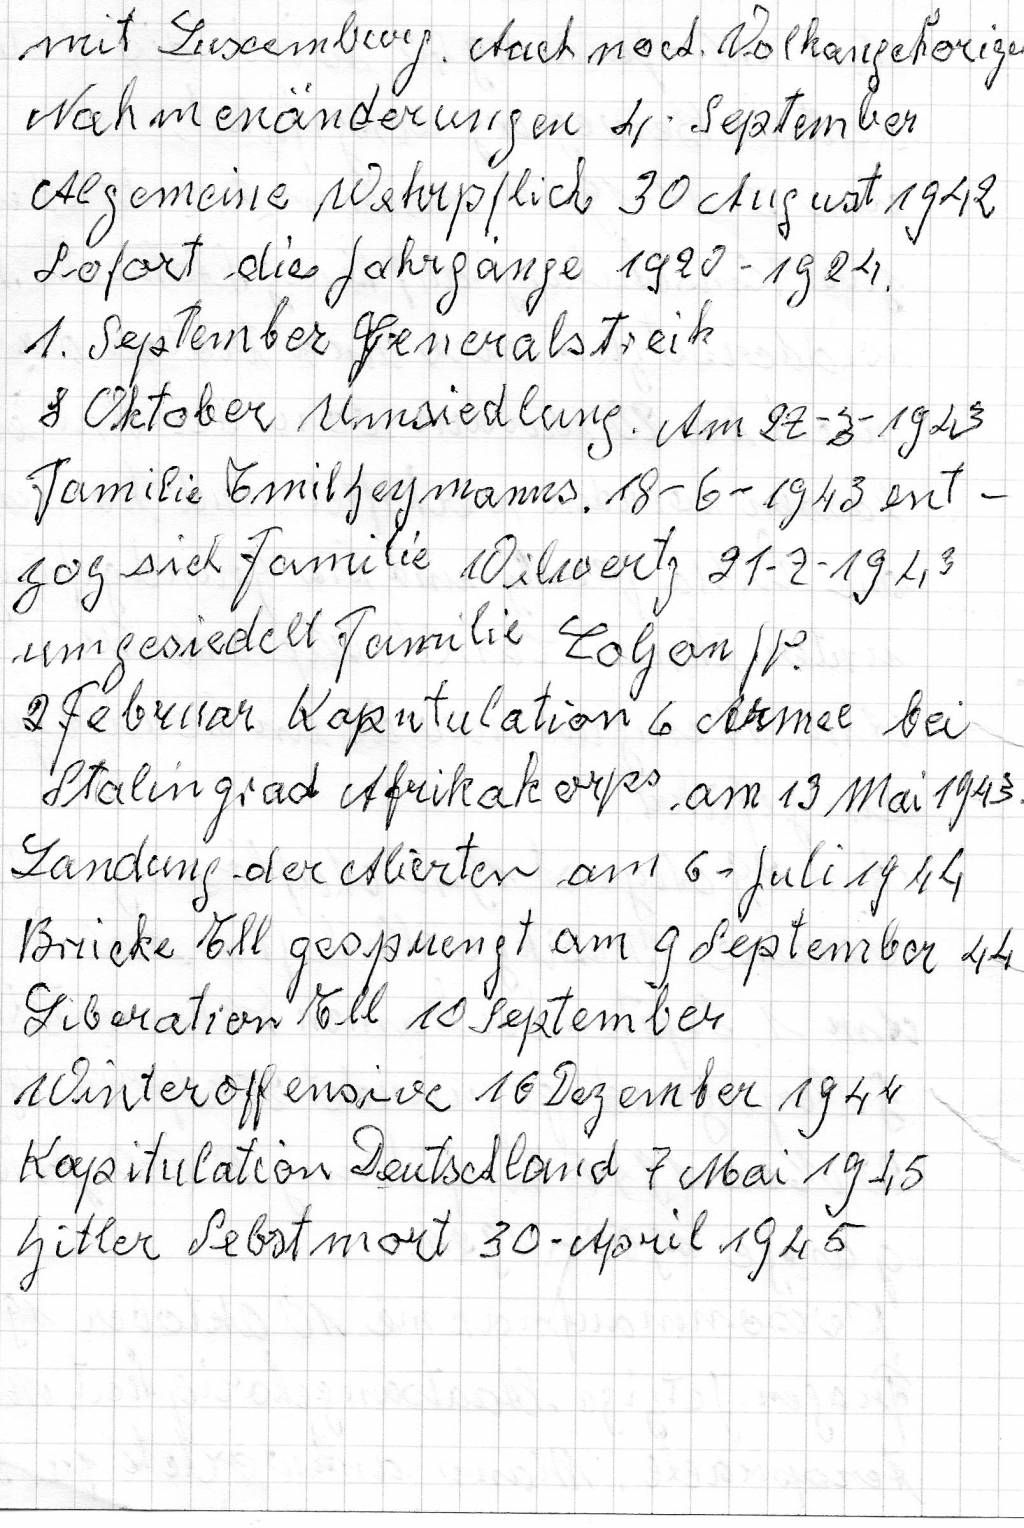 mit Luxemburg. Auch noch Volkangehörige
Nahmenänderungen 4. September
Algemeine Wehrpflich 30 August 1942
Sofort die Jahrgänge 1920-1924.
1. September Generalstreik
8 Oktober Umsiedlung. Am 27-3-1943
Familie Emil Heymanns. 18-6-1943 ent-
zog sich Familie Wilwertz 21-7-1943
umgesiedelt Familie
2 Februar Kaputulation 6 Armee bei
Stalingrad Afrikakorps am 13 Mai 1943.
Landung der Alierten am 6-Juli 1944
Brücke Ell gesprengt am 9 September 44
Liberation Ell 10 September
Winteroffensive 16 Dezember 1944
Kapitulation Deutschland 7 Mai 1945
Hitler Sebstmort 30-April 1945